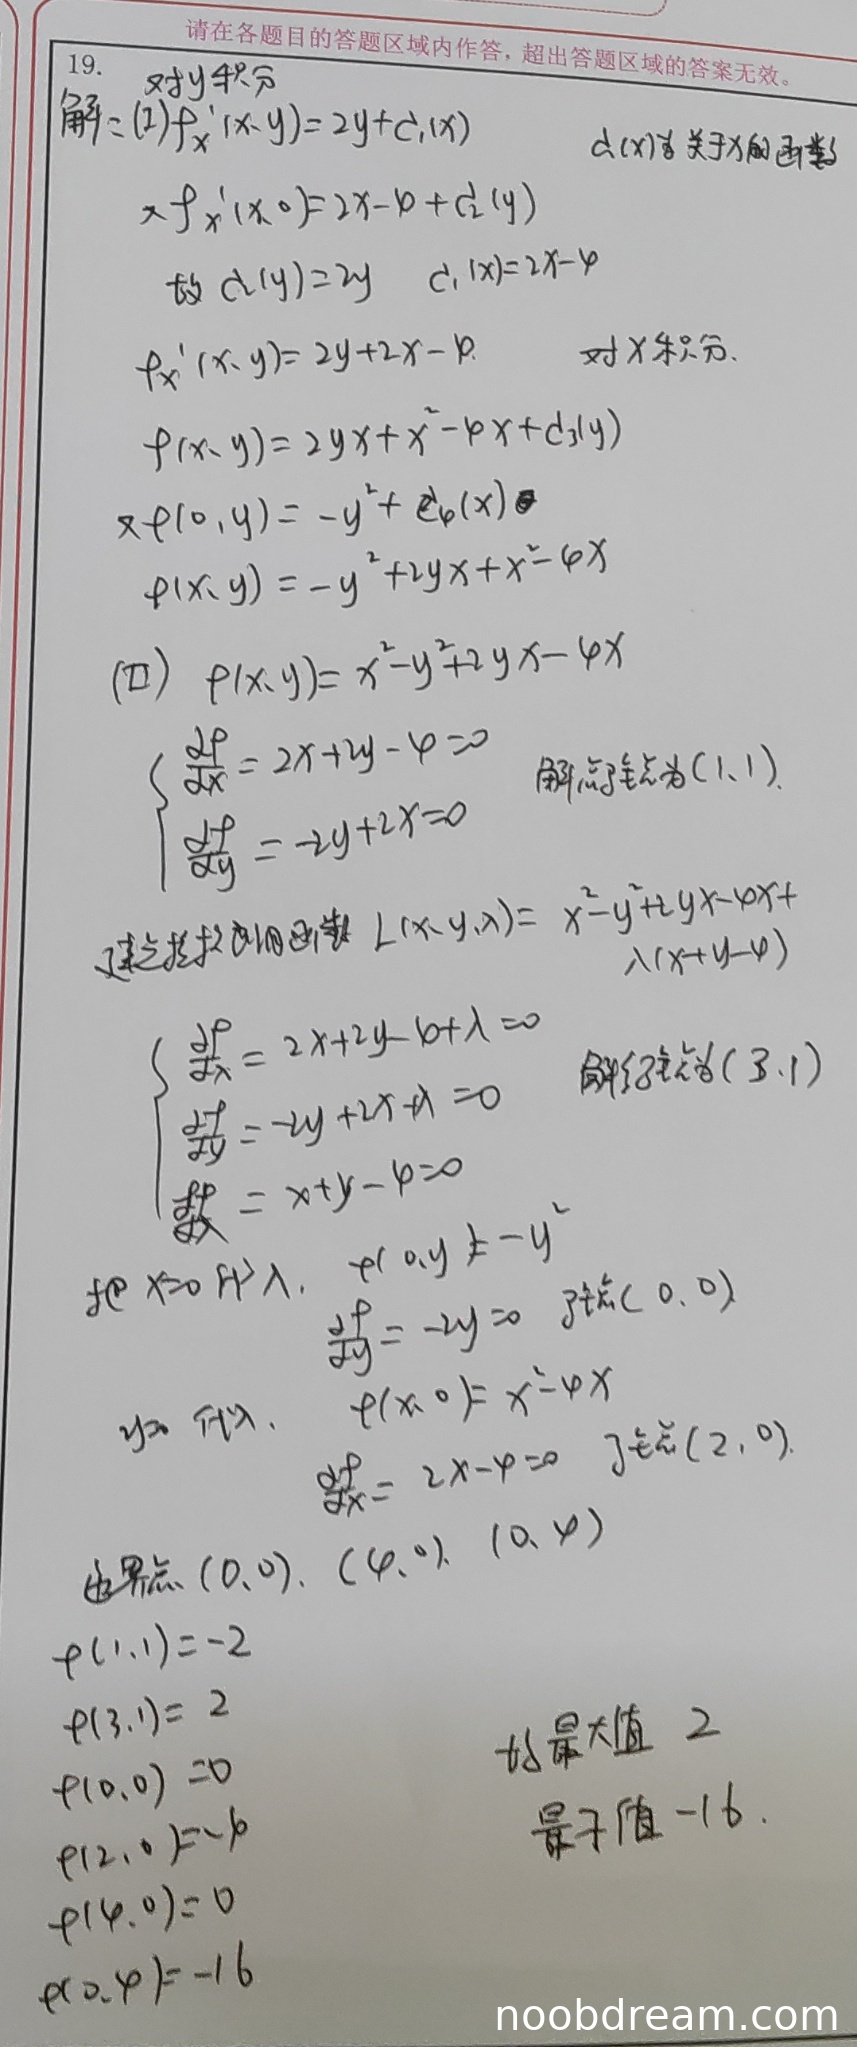 请在各题目的答题区域内作答，超出答题区域的答案无效。
19.
对y积分
解：(I) f'x(x、y)=2y+C₁(x)
C₁(x)为关于x的函数
又f'x(x,0)=2x-4+C₂(y)
故C₂(y)=2y C₁(x)=2x-4
f'x(x、y)=2y+2x-4. 对X积分.
f(x、y)=2yx+x²-4x+C₃(y)
又f(0,y)=-y²+C₄(x)
f(x、y)=-y²+2yx+x²-4x
(II) f(x、y)=x²-y²+2yx-4x
∂f/∂x=2x+2y-4=0
解点驻点为(1、1).
∂f/∂y=-2y+2x=0
建立拉格朗日函数 L(x、y,λ)= x²-y²+2yx-4x+
λ(x+y-4)
∂f/∂x=2x+2y-4+λ=0
解得驻点为(3.1)
∂f/∂y=-2y+2x+λ=0
∂f/∂λ=x+y-4=0
把x=0代入. f(0,y)=-y²
∂f/∂y=-2y=0 驻点(0.0)
y=0代入. f(x,0)=x²-4x
∂f/∂x=2x-4=0 驻点(2,0).
边界点(0、0)、(4、0)、(0、4)
f(1、1)=-2
f(3.1)=2
f(0、0)=0
f(2、0)=-4
f(4.0)=0
f(0.4)=-16
故最大值 2
最小值-16.
noobdream.com